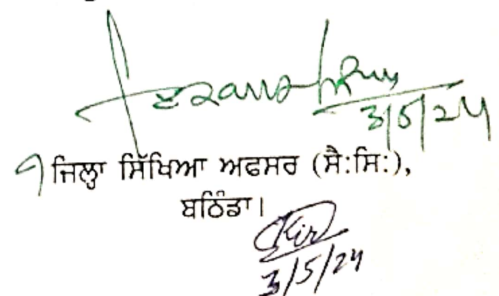 3/5/24
ਜਿਲ੍ਹਾ ਸਿੱਖਿਆ ਅਫਸਰ (ਸੈ:ਸਿ:),
ਬਠਿੰਡਾ।
3/5/24